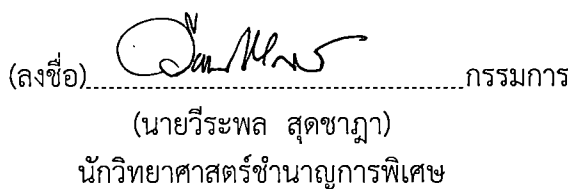 (ลงชื่อ)........................................กรรมการ
(นายวีระพล สุดชาฎา)
นักวิทยาศาสตร์ชำนาญการพิเศษ